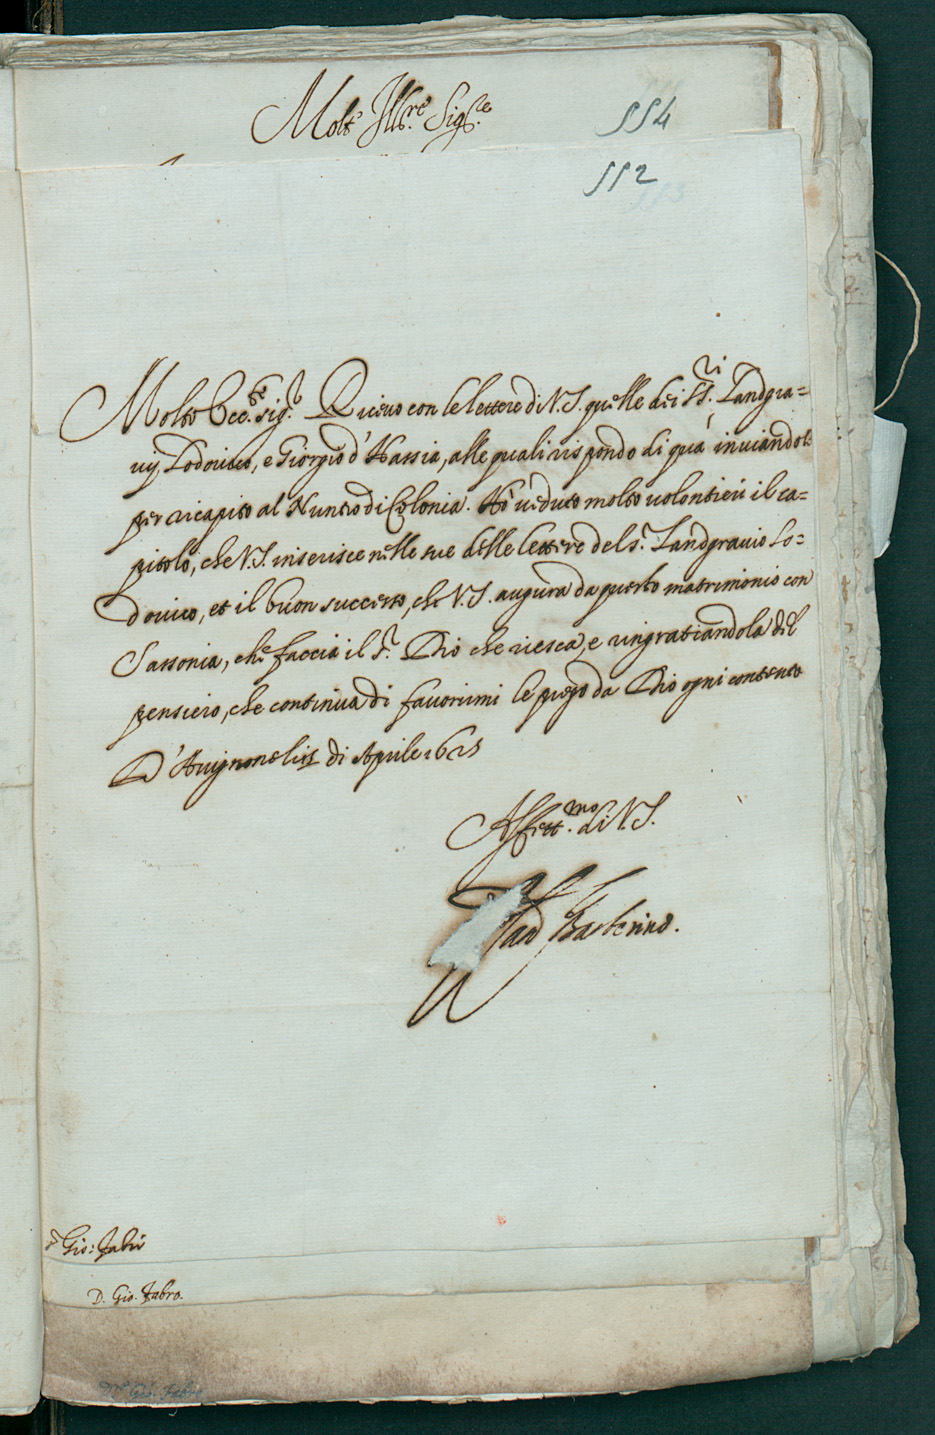 Molt' Ill.re Sig.re
114
112
113
Molto Ecc.te Sig.r Ricevo con le lettere di V.S. quelle dei SS.ri Landgra=
vij Lodovico, e Giorgio d'Hassia, alle quali rispondo di quà inviandole
per ricapito al Nuntio di Colonia. Hò veduto molto volontieri il ca=
pitolo, che V.S. inserisce nelle sue delle lettere del S.r Landgravio Lo=
dovico, et il buon successo, che V.S. augura da questo matrimonio con
Sassonia, che faccia il S.r Dio che riesca, e ringratiandola del
pensiero, che continua di favorirmi le prego da Dio ogni contento
D'Avignone li di Aprile 1625
Affett.mo di V.S.
Card Barberino.
S.r Gio: Fabri
D. Gio. Fabro.
Gio. Fabro